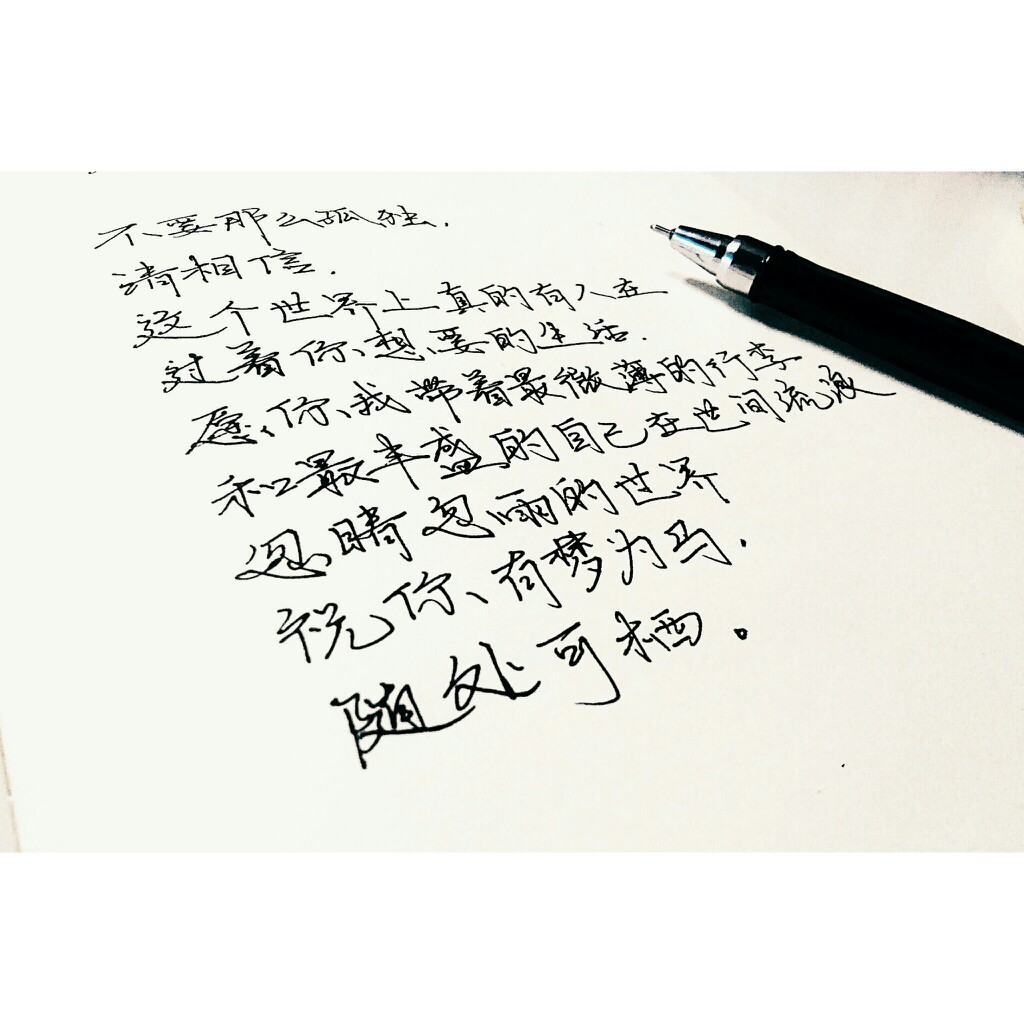 不要那么孤独.
请相信.
这个世界上真的有人在
过着你想要的生活.
愿你我带着最微薄的行李
和最丰盛的自己在世间流浪
忽晴忽雨的世界
祝你有梦为马.
随处可栖。